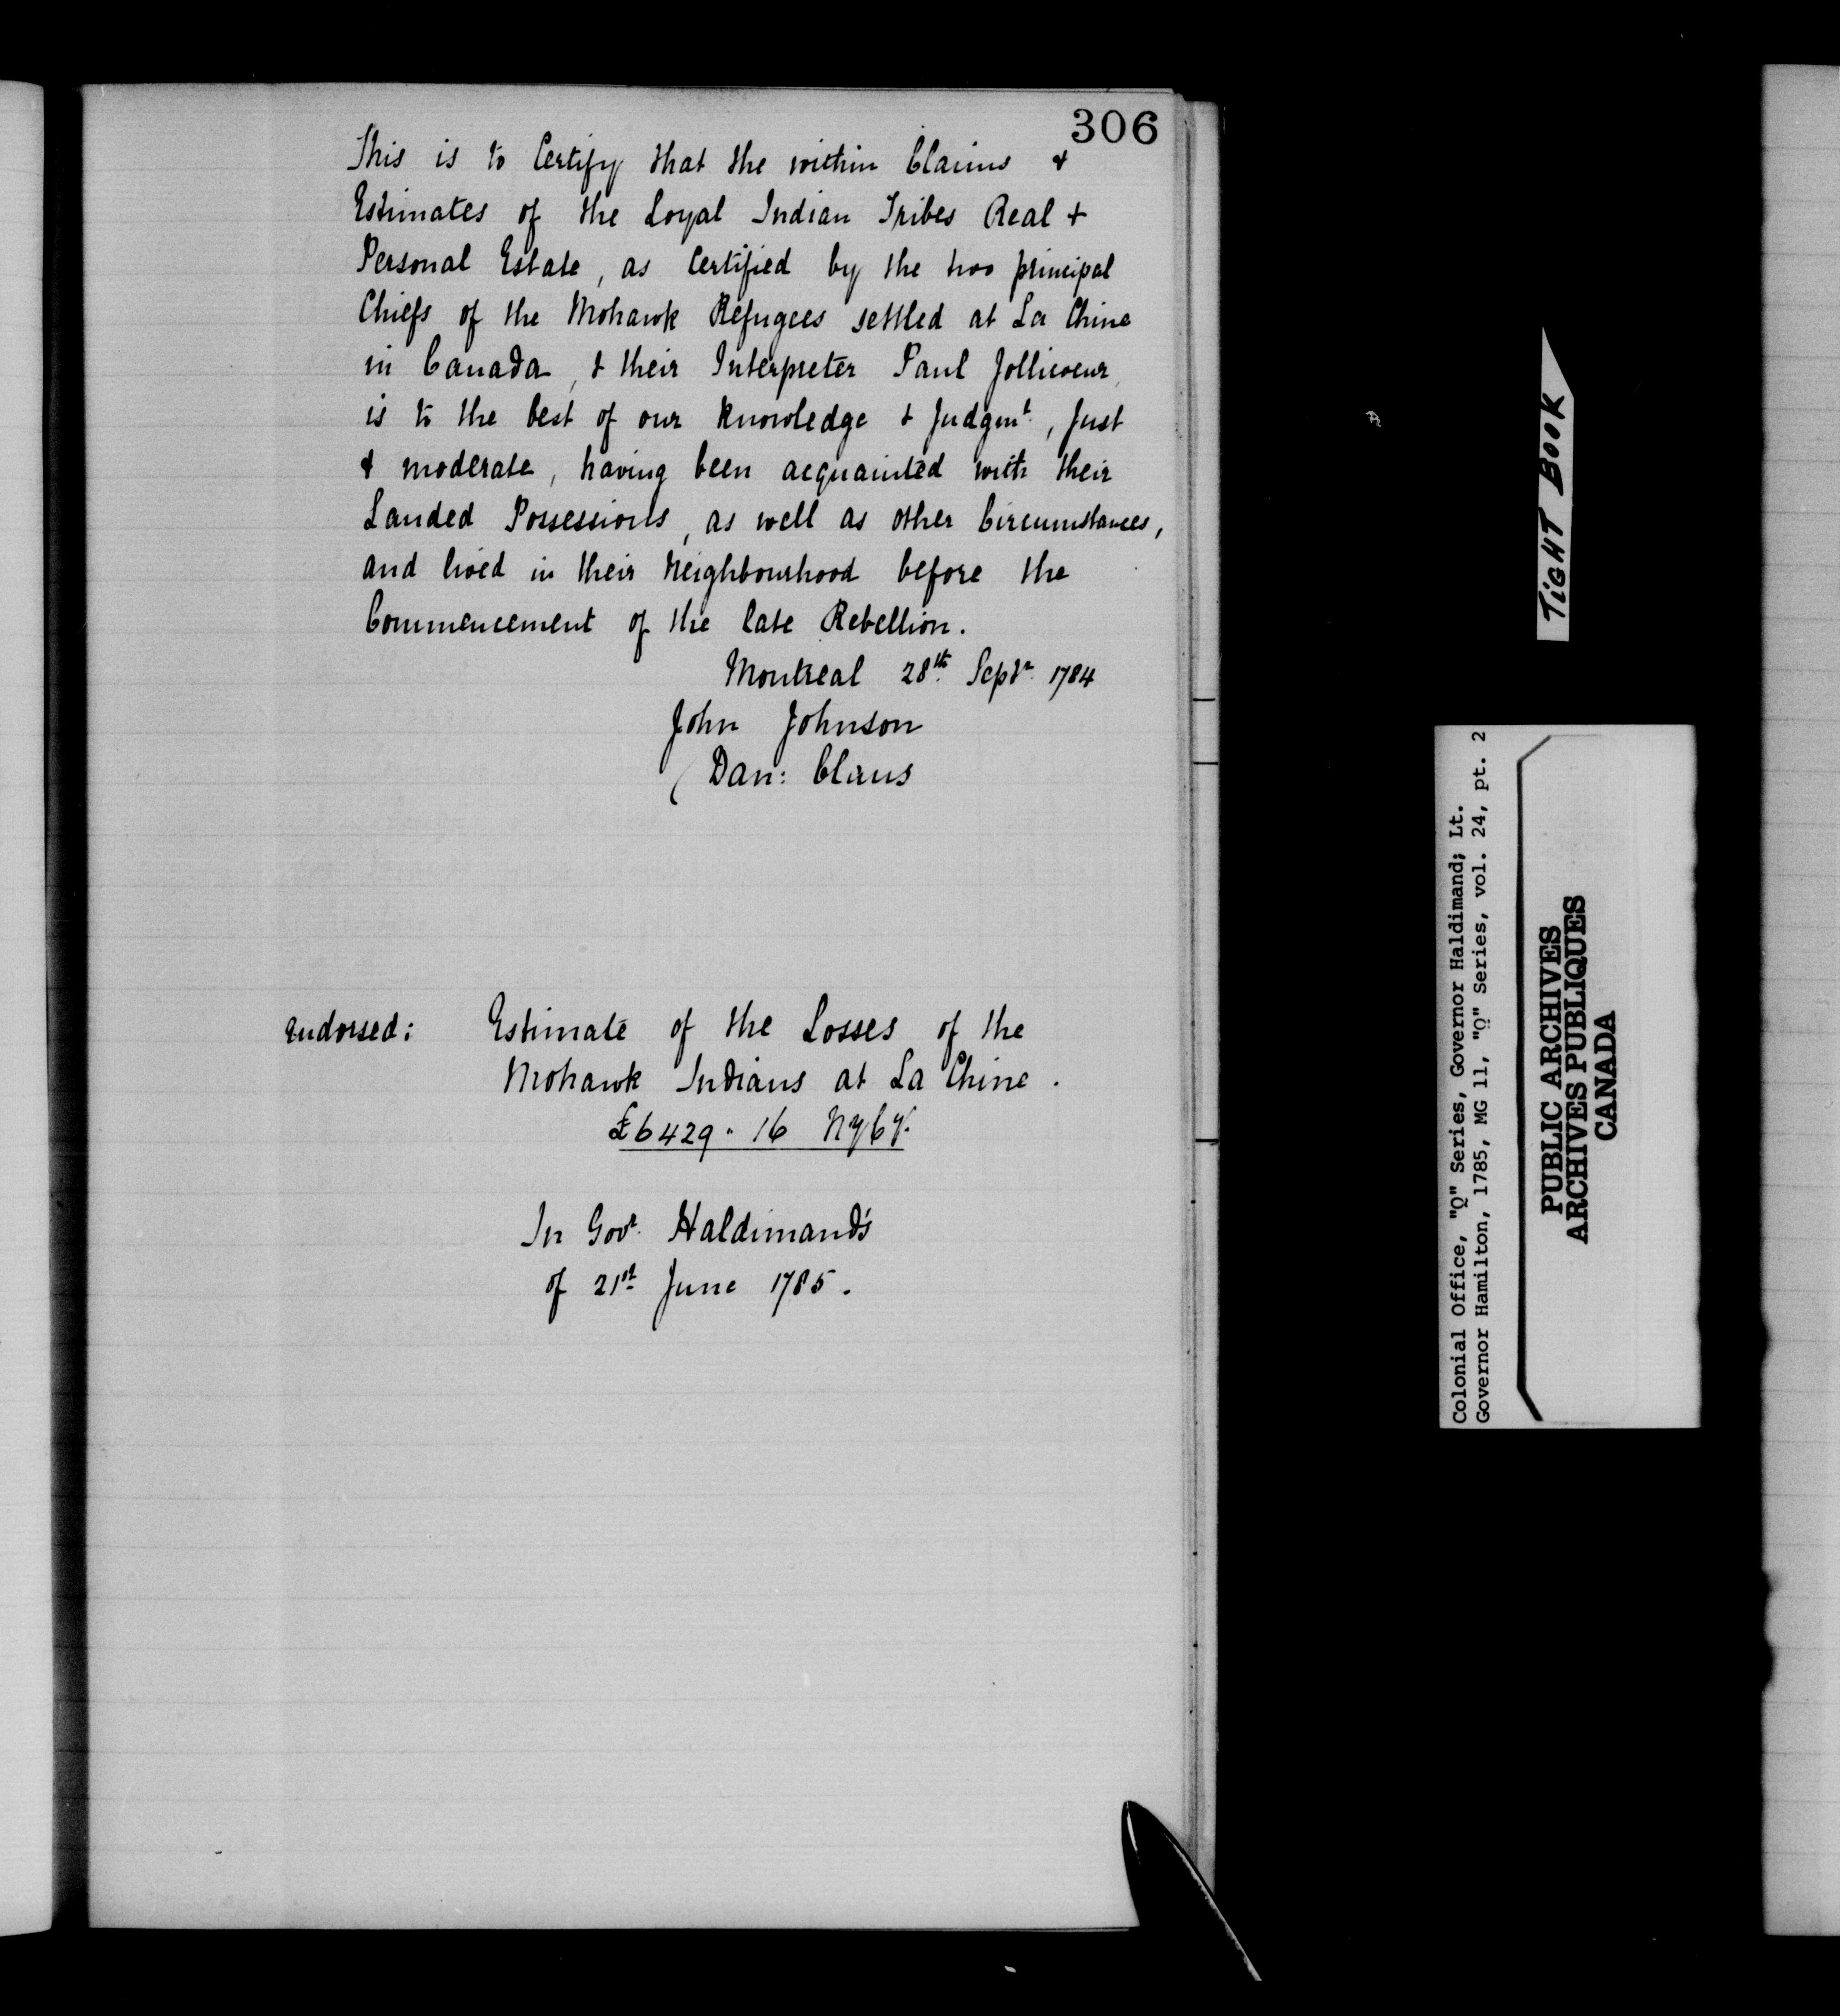 306
This is to Certify that the within Claims &
Estimates of the Loyal Indian Tribes Real &
Personal Estate, as Certified by the two principal
Chiefs of the Mohawk Refugees settled at La Chine
in Canada, & their Interpreter Paul Jollicoeur,
is to the best of our knowledge & Judgmt, Just
& moderate, having been acquainted with their
Landed Possessions, as well as other Circumstances,
and lived in their Neighbourhood before the
Commencement of the late Rebellion.
Montreal 28th Septr 1784
John Johnson
Dan: Claus
Endorsed: Estimate of the Losses of the
Mohawk Indians at La Chine.
£6429.16 NYCy.
In Govr Haldimand's
of 21st June 1785.
TIGHT BOOK
Colonial Office, "Q" Series, Governor Haldimand; Lt.
Governor Hamilton, 1785, MG 11, "Q" Series, vol. 24, pt. 2
PUBLIC ARCHIVES
ARCHIVES PUBLIQUES
CANADA